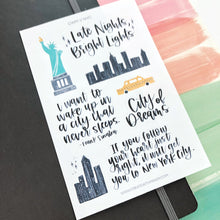 Late Nights,
Bright Lights
I want to
wake up in
a city that
never sleeps.
-Frank Sinatra
City of
Dreams
If you follow
your heart just
right, it will get
you to New York City.